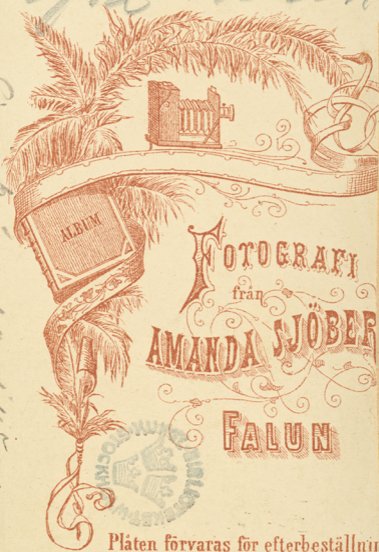 ALBUM
FOTOGRAFI
från
AMANDA SJÖBER
FALUN
Plåten förvaras för efterbeställnin